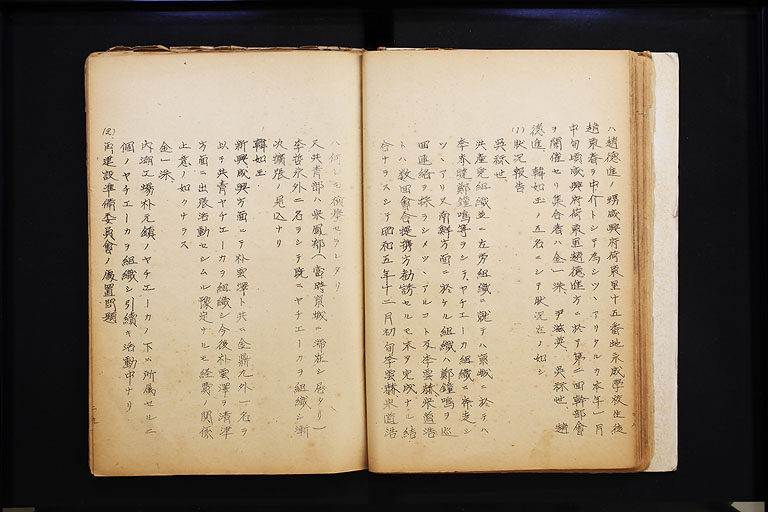 ハ趙德進ノ甥咸興府荷東里十五番地永成學校生徒
趙東春ヲ中介トシテ為シツヽアリタルカ本年一月
中旬頃咸興府荷東里趙德進方ニ於テ第二回幹部會
ヲ開催セリ集合者ハ金一洙、尹滋英、吳秝世、趙
德進、韓如玉ノ五名ニシテ狀況左ノ如シ
(1)狀況報告
吳秝世、
共産党組織並ニ左勞組織ニ就テハ京城ニ於テハ
李春建鄭鐘鳴等ヲシテヤチエーカ組織ニ奔走シ
ツヽアリ又南鮮方面ニ於ケル組織ハ鄭鐘鳴ヲ巡
回連絡ヲ採ラシメツヽアルコト及李雲赫梁道浩
トハ数回會合提携方勸誘セルモ未タ完成ナル結
合ナラスシテ昭和五年十二月初旬李雲赫梁道浩
ハ何レモ檢擧セラレタリ
又共青部ハ吳鳳郁(當時京城ニ滞在シ居タリ)
李哲永外二名ヲシテ既ニヤチエーカヲ組織シ漸
次擴張ノ見込ナリ
韓如玉
新興咸興方面ニテ朴雲澤ト共ニ金鼎九外一名ヲ
以テ共青ヤチエーカヲ組織シ今後朴雲澤ヲ清津
方面ニ出張活動セシムル豫定ナルモ經費ノ関係
上意ノ如クナラス
金一洙、
内湖工場朴元鎮ノヤチエーカノ下ニ所属セル二
個ノヤチエーカヲ組織シ引續キ活動中ナリ
(2)再建設準備委員會ノ設置問題